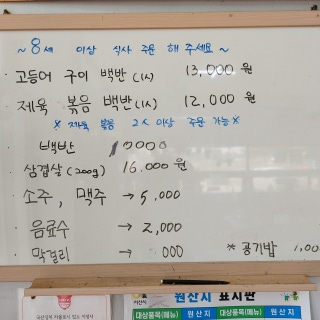 ~ 8세 이상 식사 주문 해 주세요 ~
· 고등어 구이 백반(1人) 13,000 원
· 제육 볶음 백반(1人) 12,000 원
※ 제육 볶음 2人 이상 주문 가능 ※
· 백반
· 삼겹살 (200g) 16,000 원
· 소주, 맥주 → 5,000
· 음료수 → 2,000
· 막걸리 → 000 * 공기밥
원산지 표시판
대상품목(메뉴) 원산지 대상품목(메뉴) 원산지